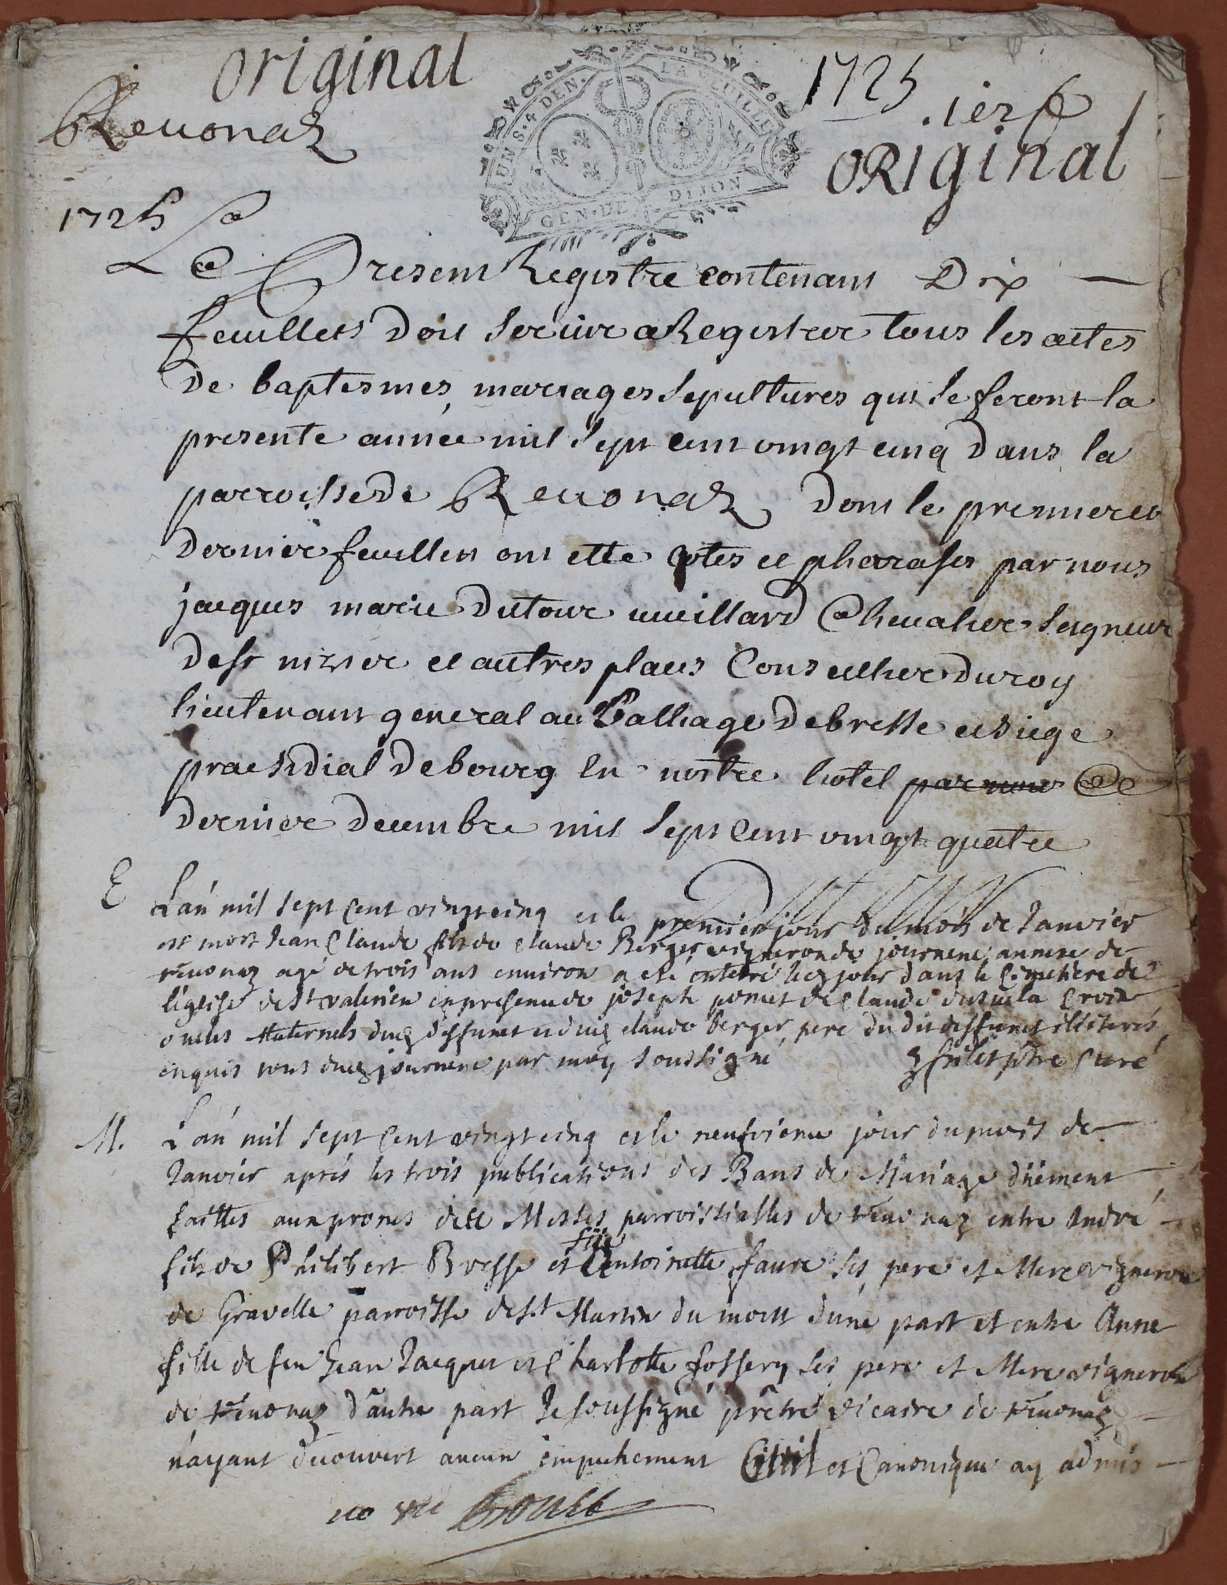 original
Reuonas
1725
1er f
ORIginal
DEN S. 4 DEN. LA FEUILLE
GEN. DE DIJON
1725
Le Present Registre contenant Dix
feuillets Doit seruir a Registrer tous les actes
De baptesmes, mariages sepultures qui se feront la
presente année mil sept cent vingt cinq Dans la
parroisse De Reuonas Dont le premier et
Dernier feuillets ont esté cotes et pharafes par nous
jacques marie Dutour uueillard Cheualier seigneur
De st nizier et autres places Conseiller Du roy
lieutenant general au Balliage De bresse et siege
praesidial De bourg En nostre hotel par nous Ce
Dernier Decembre mil sept Cent vingt quatre
E
L'an mil sept Cent vingt cinq et le premier jour du mois de Janvier
est mort Jean Claude fils de Claude Berger vigneron de journens annexe de
reuonaz agé de trois ans environ a esté enterré led jour dans le Cimetiere de
l'eglise de St valerien en presence de joseph poncet de Claude la Croix
oncles Maternels dud deffunct et dud claude Berger pere du dit deffunct illiterés
enquis tous dud journens par moy soussigné ptre Curé
M.
L'an mil sept Cent vingt cinq et le neufvieme jour du mois de
Janvier aprés les trois publications des Bans de Mariage düement
faittes aux prones des Messes parroissialles de reuonaz entre André
fils de Philibert Bresse et Antoinette faure ses pere et Mere vigneron
de Gravelle parroisse de St Martin du mont d'une part et entre Anne
fille de feu Jean Jacques et Charlotte fossery ses pere et Mere vigneron
de reuonaz d'autre part Je soussigné prêtre vicaire de reuonaz
n'ayant decouvert aucun empechement Civil et Canonique ay admis